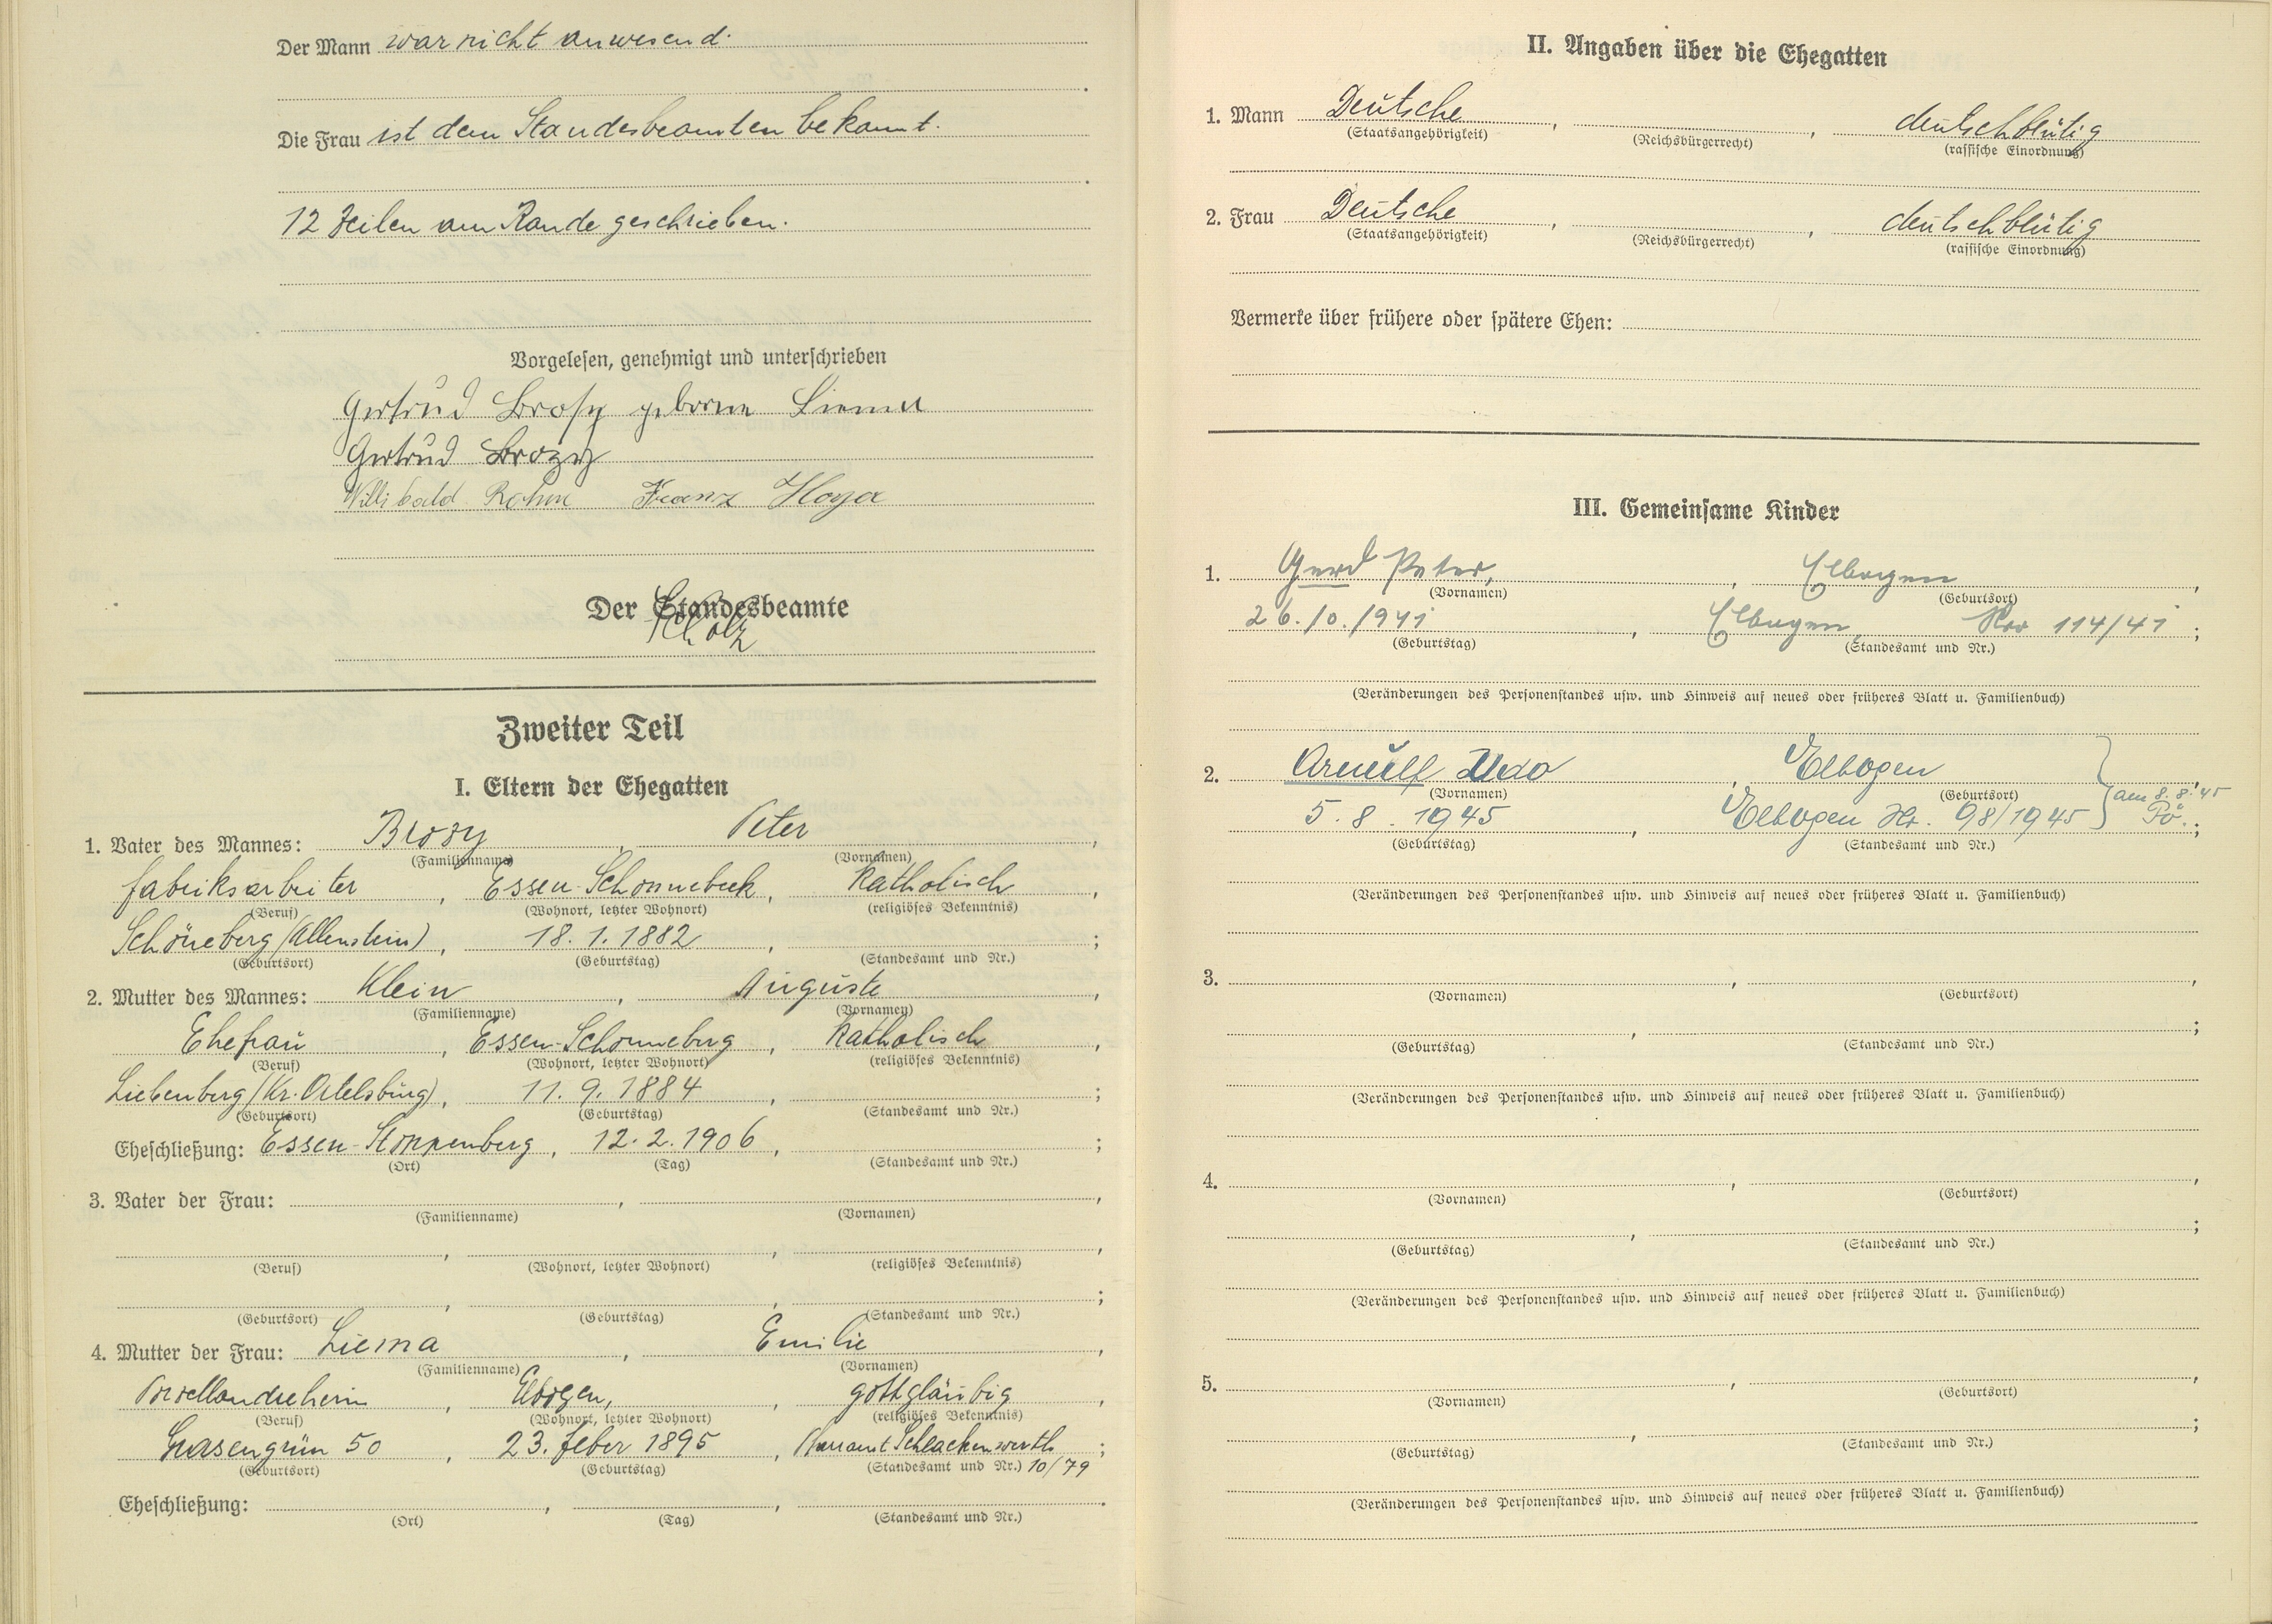 Der Mann war nicht anwesend.
Die Frau ist dem Standesbeamten bekannt.
12 Zeilen am Rande geschrieben.
Vorgelesen, genehmigt und unterschrieben
Gertrud Brosy geborne Liema
Gertrud Brozy
Willibald Rohm Franz Hoyer
Der Standesbeamte
Scholz
Zweiter Teil
I. Eltern der Ehegatten
1. Vater des Mannes: Brozy, Peter,
(Familienname) (Vornamen)
Fabriksarbeiter, Essen-Schonnebeck, Katholisch,
(Beruf) (Wohnort, letzter Wohnort) (religiöses Bekenntnis)
Schöneberg (Allenstein), 18. 1. 1882, ;
(Geburtsort) (Geburtstag) (Standesamt und Nr.)
2. Mutter des Mannes: Klein, Auguste,
(Familienname) (Vornamen)
Ehefrau, Essen-Schonneberg, Katholisch,
(Beruf) (Wohnort, letzter Wohnort) (religiöses Bekenntnis)
Liebenberg (Kr. Ortelsburg), 11. 9. 1884, ;
(Geburtsort) (Geburtstag) (Standesamt und Nr.)
Eheschließung: Essen-Stoppenberg, 12. 2. 1906, ;
(Ort) (Tag) (Standesamt und Nr.)
3. Vater der Frau: , ,
(Familienname) (Vornamen)
, , ,
(Beruf) (Wohnort, letzter Wohnort) (religiöses Bekenntnis)
, , ;
(Geburtsort) (Geburtstag) (Standesamt und Nr.)
4. Mutter der Frau: Liema, Emilie,
(Familienname) (Vornamen)
Porzellandreherin, Elbogen, gottgläubig,
(Beruf) (Wohnort, letzter Wohnort) (religiöses Bekenntnis)
Grasengrün 50, 23. Feber 1895, Pfarramt Schlackenwerth;
(Geburtsort) (Geburtstag) (Standesamt und Nr.) 10/79
Eheschließung: , , .
(Ort) (Tag) (Standesamt und Nr.)
II. Angaben über die Ehegatten
1. Mann Deutsche, , deutschblütig
(Staatsangehörigkeit) (Reichsbürgerrecht) (rassische Einordnung)
2. Frau Deutsche, , deutschblütig
(Staatsangehörigkeit) (Reichsbürgerrecht) (rassische Einordnung)
Vermerke über frühere oder spätere Ehen:
III. Gemeinsame Kinder
1. Gerd Peter, , Elbogen,
(Vornamen) (Geburtsort)
26./10./1941, Elbogen, 114/41;
(Geburtstag) (Standesamt und Nr.)
(Veränderungen des Personenstandes usw. und Hinweis auf neues oder früheres Blatt u. Familienbuch)
2. Arnulf Udo, Elbogen,
(Vornamen) (Geburtsort) am 8. 8. '45
5. 8. 1945, Elbogen Nr. 98/1945 Pö.;
(Geburtstag) (Standesamt und Nr.)
(Veränderungen des Personenstandes usw. und Hinweis auf neues oder früheres Blatt u. Familienbuch)
3. , ,
(Vornamen) (Geburtsort)
, ;
(Geburtstag) (Standesamt und Nr.)
(Veränderungen des Personenstandes usw. und Hinweis auf neues oder früheres Blatt u. Familienbuch)
4. , ,
(Vornamen) (Geburtsort)
, ;
(Geburtstag) (Standesamt und Nr.)
(Veränderungen des Personenstandes usw. und Hinweis auf neues oder früheres Blatt u. Familienbuch)
5. , ,
(Vornamen) (Geburtsort)
, ;
(Geburtstag) (Standesamt und Nr.)
(Veränderungen des Personenstandes usw. und Hinweis auf neues oder früheres Blatt u. Familienbuch)